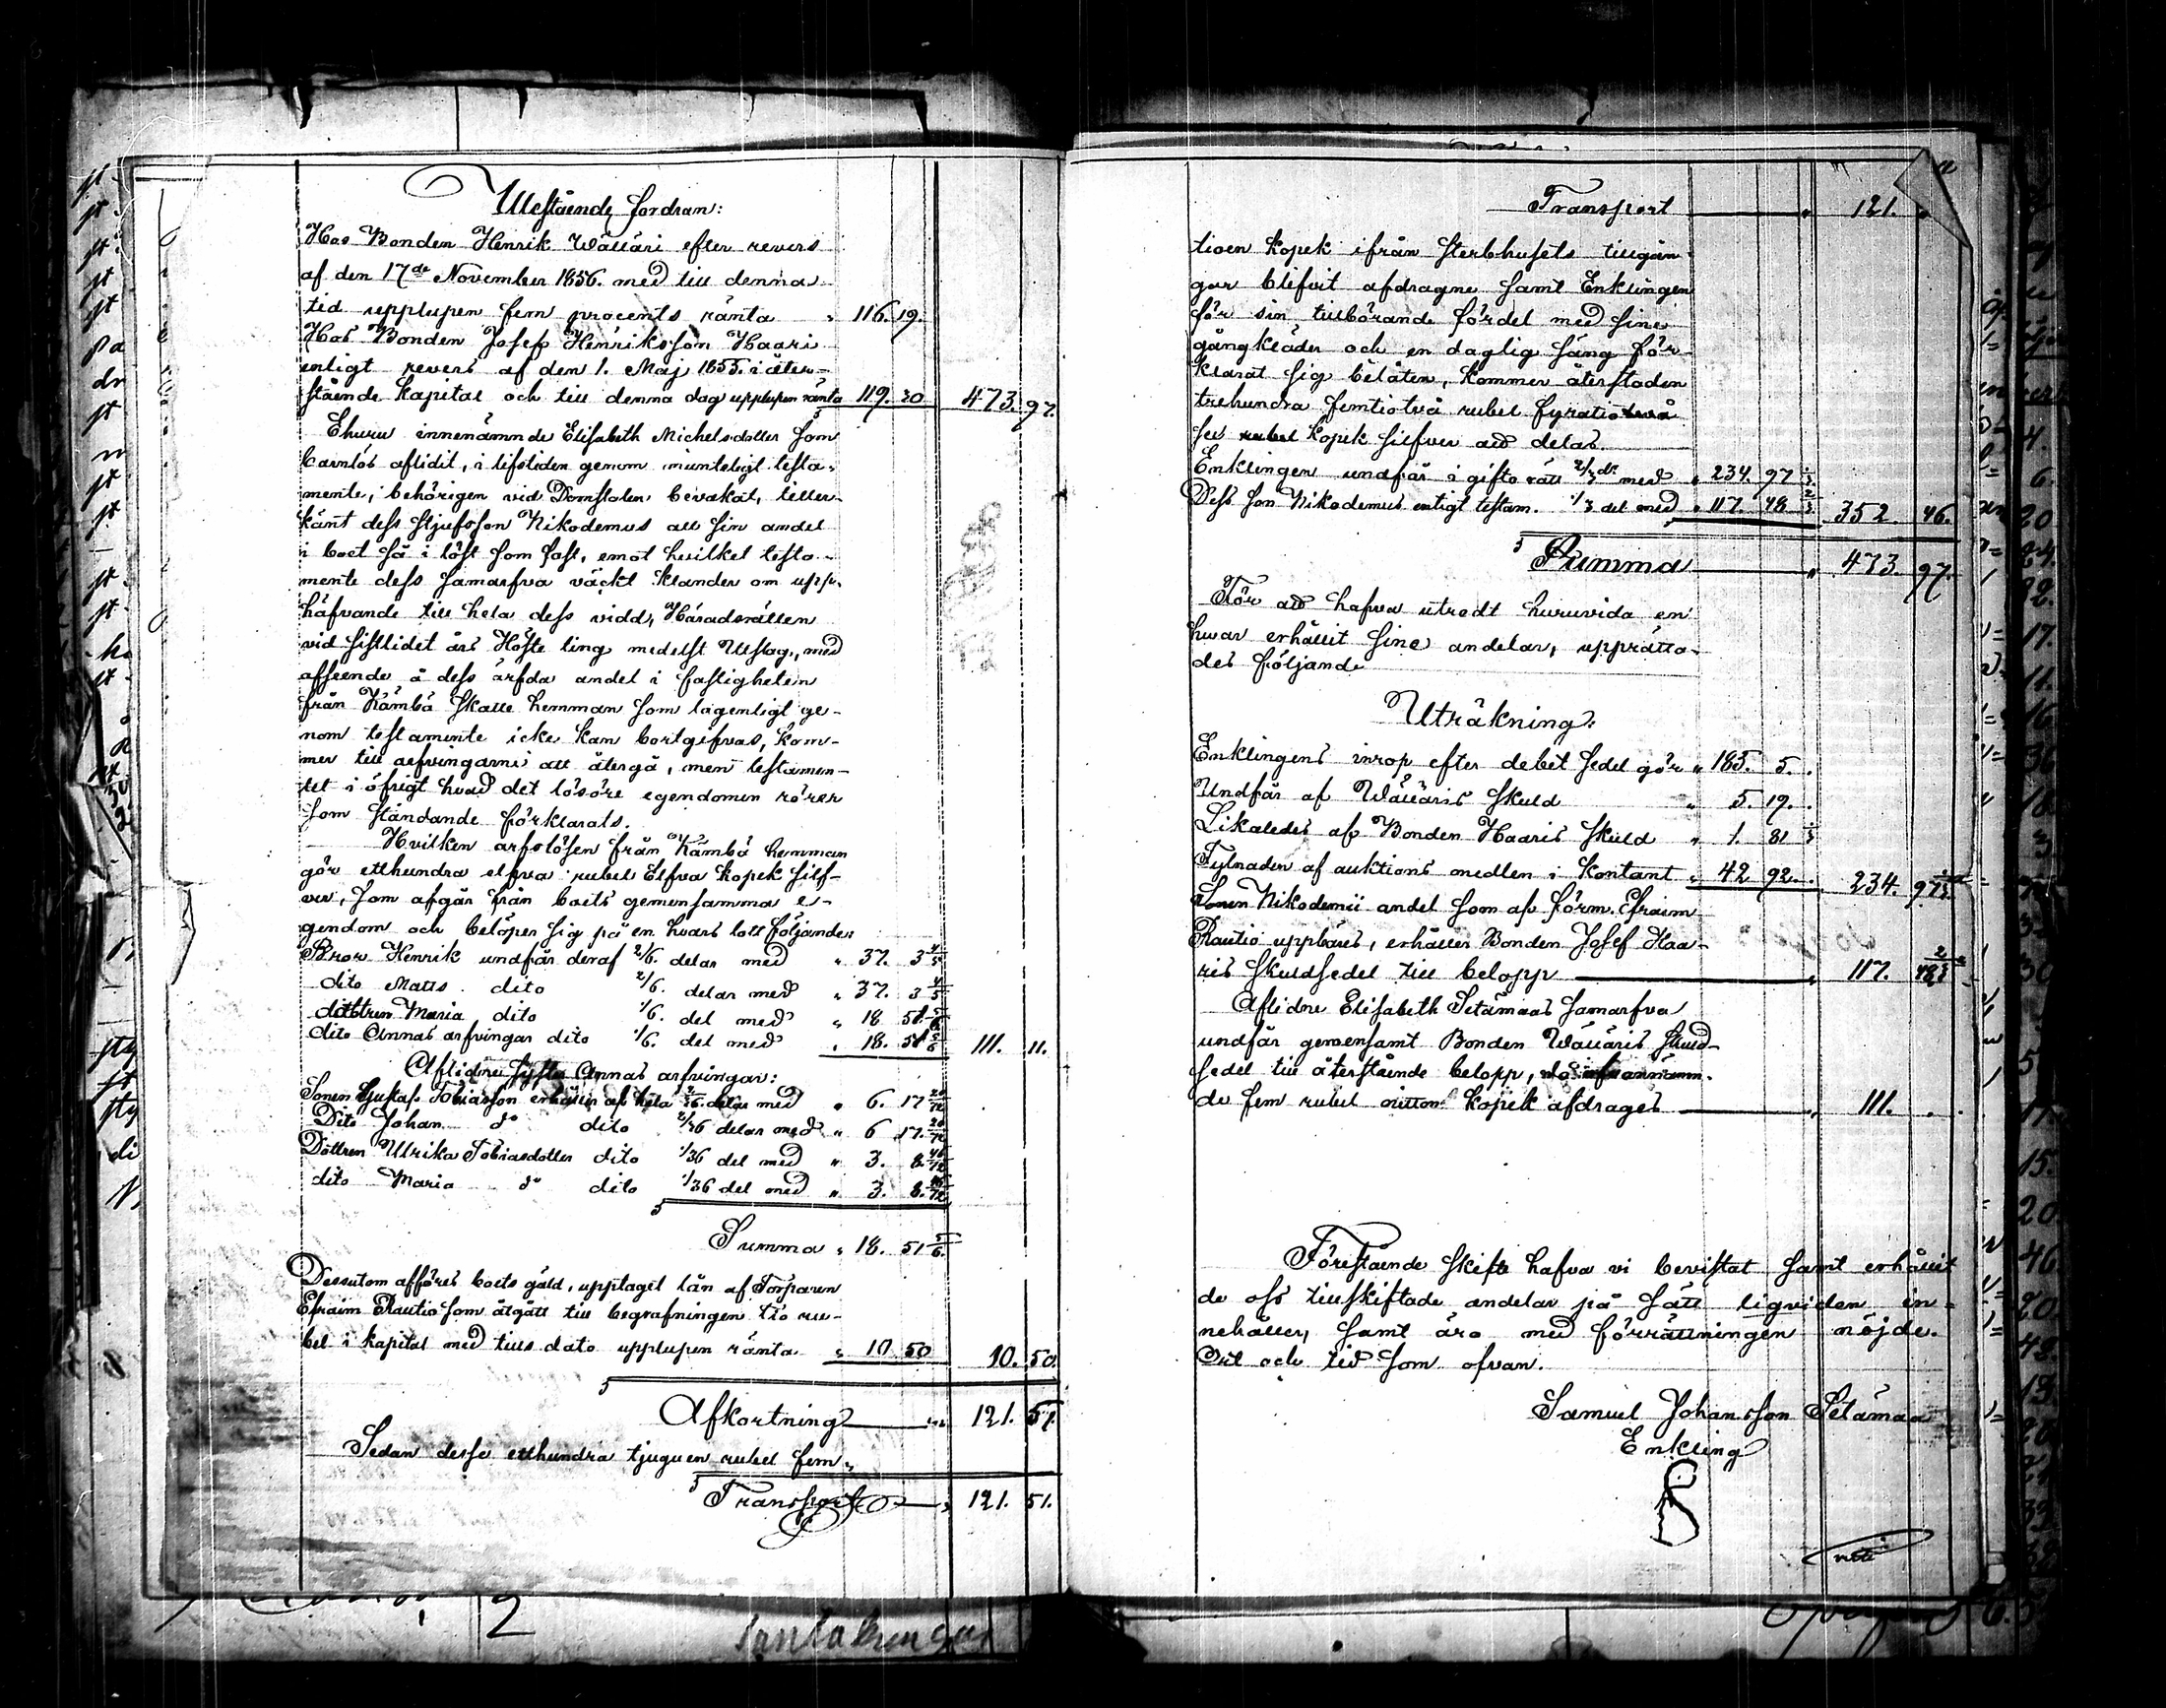 Utestående fordran:
Hos Bonden Henrik Wälläri efter revers
af den 17de November 1856. med till denna
tid upplupen fem procents ränta " 116. 19.
Hos Bonden Josef Henriksson Haari
enligt revers af den 1. Maj 1855. i åter-
stående kapital och till denna dag upplupen ränta 119. 30 473. 97.
Ehuru innenämnde Elisabeth Michelsdotter som
barnlös aflidit, i lifstiden genom munteligt testa-
mente, behörigen vid Domstolen bevakat, tiller-
känt dess stjufson Nikodemus all sin andel
i boet så i löst som fast, emot hvilket testa-
mente dess samarfva väckt klander om upp-
häfvande till hela dess vidd, Häradsrätten
vid sistlidet års Höste ting medelst Utslag, med
afseende å dess ärfda andel i fastigheten
från Kämbä Skatte hemman som lagenligt ge-
nom testamente icke kan bortgifvas, kom-
mer till arfvingarne att återgå, men testamen-
tet i öfrigt hvad det lösöre egendomen rörer
som ständande förklarats.
Hvilken arfslösen från Kämbä hemman
gör etthundra elfva rubel Elfva kopek silf-
ver, som afgår från boets gemensamma e-
gendom och belöper sig på en hvars lott följande:
Bror Henrik undfår deraf 2/6. delar med " 37. 3 4/6
dito Matts. dito 2/6. delar med " 37. 3 4/6
dottren Maria dito 1/6. del med " 18 51 5/6
dito Annas arfvingar dito 1/6. del med " 18. 51 5/6 111. 11.
Aflidne syster Annas arfvingar:
Sonen Gustaf Tobiasson erhåller af hela 2/36. delar med " 6. 17 20/72
Dito Johan do dito 2/36 delar med " 6 17. 20/72
Dottren Ulrika Tobiasdotter dito 1/36 del med " 3. 8. 46/72
dito Maria do dito 1/36 del med " 3. 8. 46/72
Summa " 18. 51 5/6.
Dessutom afföres boets gäld, upptaget lån af Torparen
Efraim Rautio som åtgått till begrafningen tio ru-
bel i kapital med tills dato upplupen ränta " 10 50 10. 50
Afkortning 121. 51.
Sedan desse etthundra tjuguen rubel fem-
Transport 121. 51.
Transport " 121.
tioen kopek ifrån sterbhusets tillgån-
gar blifvit afdragne samt Enklingen
för sin tillbörande fördel med sine
gångkläder och en daglig säng för-
klarat sig belåten, kommer återstoden
trehundra femtiotvå rubel fyratio
sex kopek silfver att delas.
Enklingen undfår i giftorätt 2/3 dr med " 234. 97 1/3
Dess son Nikodemus enligt testam. 1/3 del med " 117. 48 2/3 352. 46.
Summa " 473. 97.
För att hafva utredt huruvida en
hvar erhållit sine andelar, upprätta-
des följande
Uträkning:
Enklingens inrop efter debet sedel gör " 185. 5.
Undfår af Wälläris skuld " 5. 19.
Likaledes af Bonden Haaris skuld " 1. 81 1/3
Fylnaden af auktions medlen i Kontant " 42 92. 234. 97 1/3.
Sonen Nikodemii andel som af förm. Efraim
Rautio uppbäres, erhåller Bonden Josef Haa-
ris skuldsedel till belopp " 117. 48 2/3
Aflidne Elisabeth Setämaas samarfva
undfår gemensamt Bonden Wälläris skuld-
sedel till återstående belopp, då
de fem rubel nitton kopek afdrages " 111.
Förestående skifte hafva vi bevistat samt erhållit
de oss tillskiftade andelar på sätt liqviden in-
nehåller, samt äro med förrättningen nöjde.
Ort och tid som ofvan.
Samuel Johansson Setämaa
Enkling